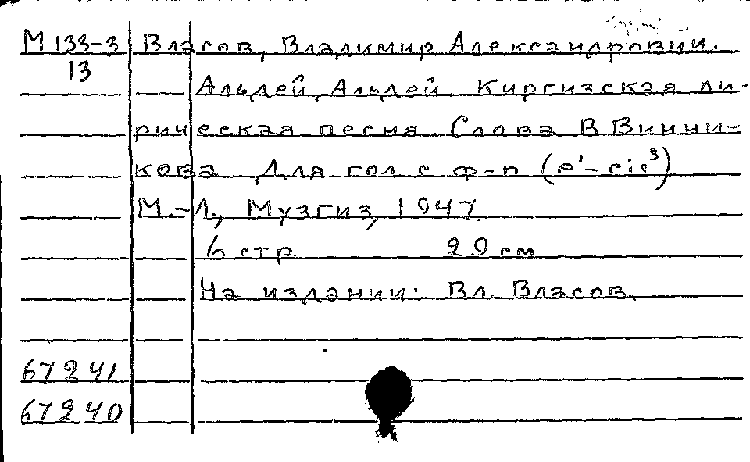 М 133-3 Власов, Владимир Александрович.
13
Альдей, Альдей. Киргизская ли-
рическая песня. Слова В. Винни-
кова. Для гол. с ф-п. (e¹-cis³)
М.-Л., Музгиз, 1947.
6 стр. 29 см.
На издании: Вл. Власов.
67241
67240